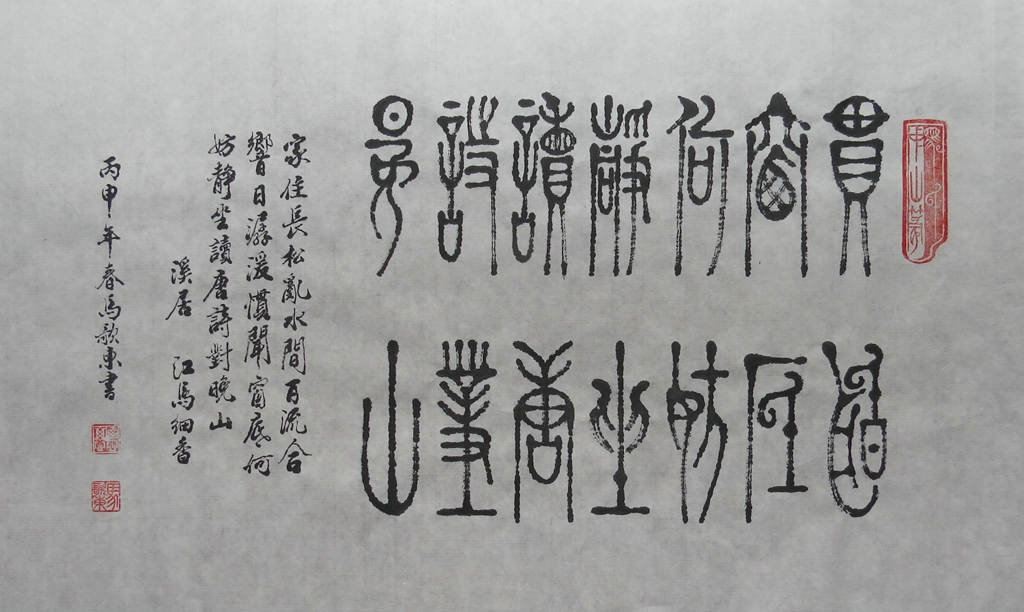 貫聞
窗底
何妨
靜坐
讀唐
詩對
晚山
家住長松亂水間百流合
響日潺湲慣聞窗底何
妨靜坐讀唐詩對晚山
溪居 江馬細香
丙申年春馬歌東書